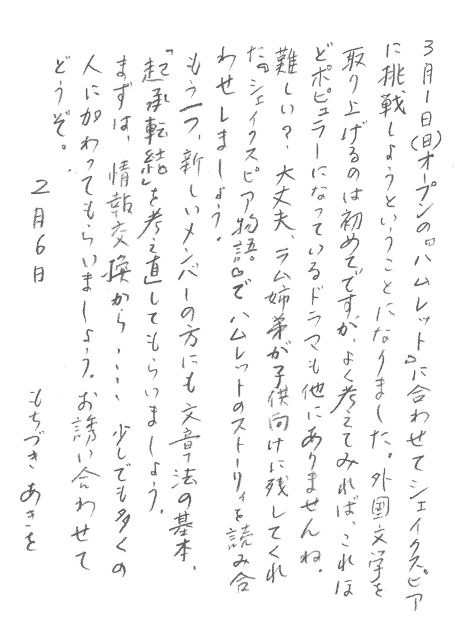 3月1日(日)オープンの『ハムレット』に合わせてシェイクスピア
に挑戦しようということになりました。外国文学を
取り上げるのは初めてですが、よく考えてみれば、これほ
どポピュラーになっているドラマも他にありませんね。
難しい?、大丈夫、ラム姉弟が子供向けに残してくれ
た『シェイクスピア物語』でハムレットのストーリィを読み合
わせしましょう。
もう一つ、新しいメンバーの方にも文章法の基本、
「起承転結」を考え直してもらいましょう。
まずは、情報交換から‥‥少しでも多くの
人に加わってもらいましょう。お誘い合わせて
どうぞ。
2月6日
もちづきあきを